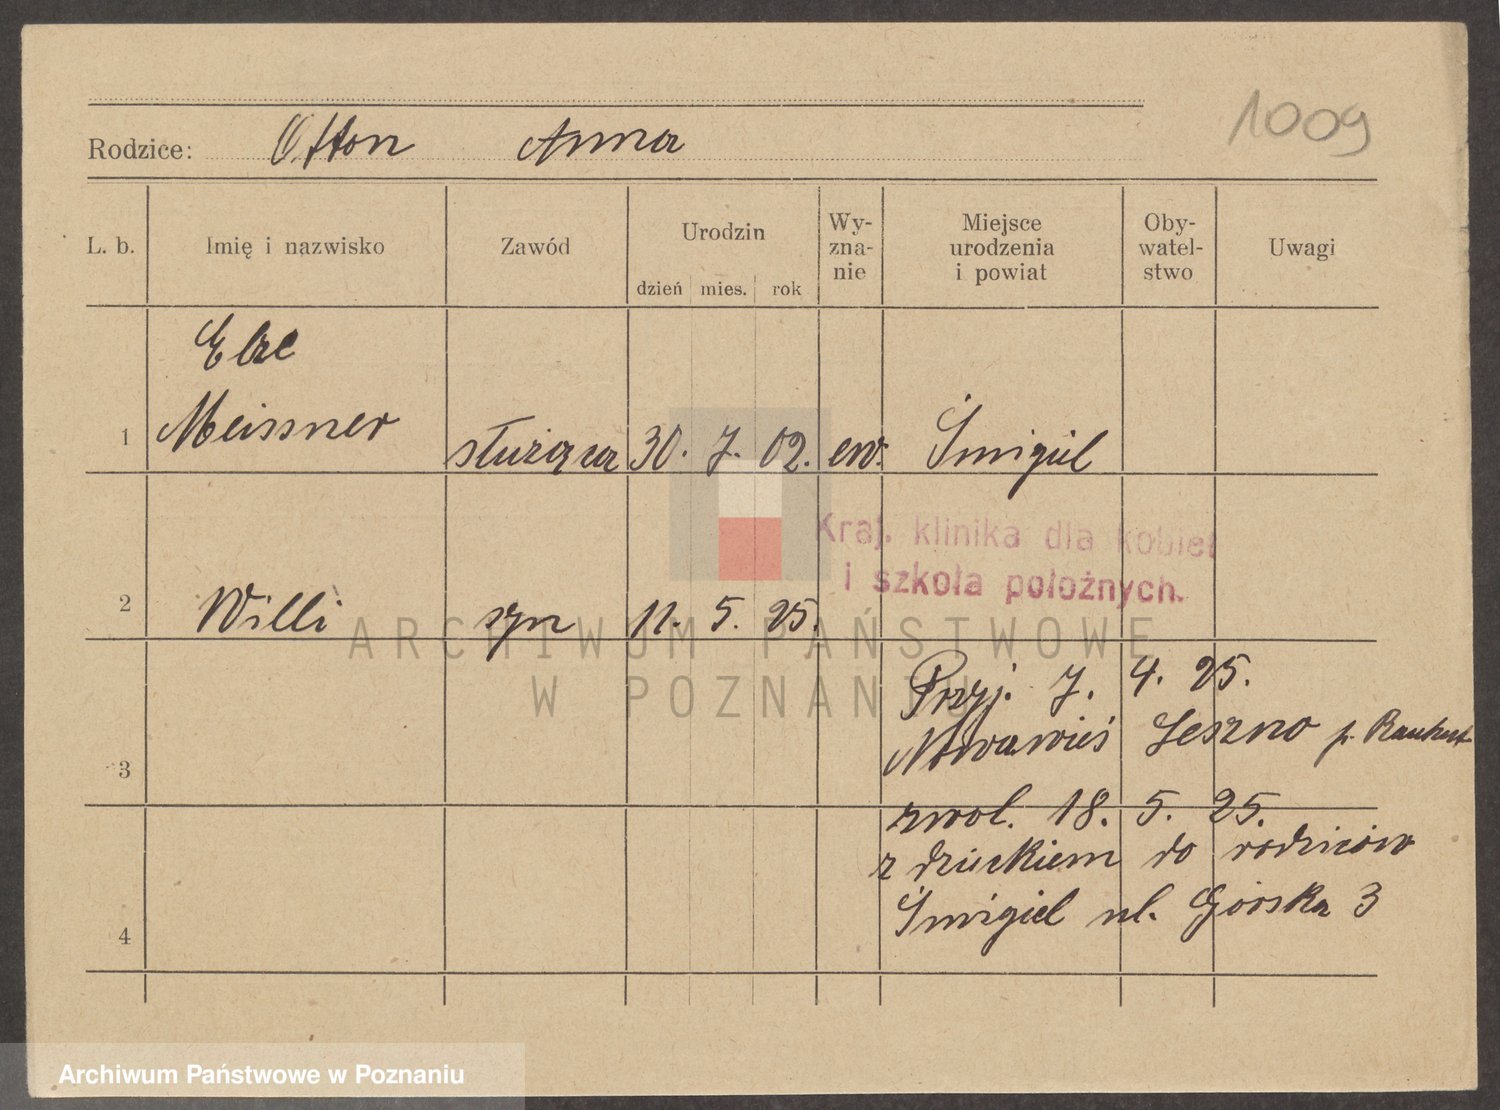 1009
Rodzice: Otton Anna
L. b. Imię i nazwisko Zawód Urodzin Wy- Miejsce Oby- Uwagi
zna- urodzenia watel-
dzień mies. rok nie i powiat stwo
Else
1 Meissner służąca 30. 7. 02. ew. Śmigiel
Kraj. klinika dla kobiet
i szkoła położnych.
2 Willi syn 11. 5. 25.
ARCHIWUM PAŃSTWOWE
W POZNANIU
Przyj. 7. 4. 25.
3 Nowawieś Leszno p.
zwol. 18. 5. 25.
z dzieckiem do rodziców
4 Śmigiel ul. Górska 3
Archiwum Państwowe w Poznaniu